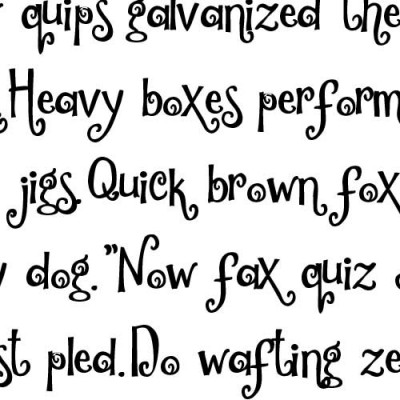 quips galvanized the
Heavy boxes perform
jigs. Quick brown fox
dog. "Now fax quiz
pled. Do wafting